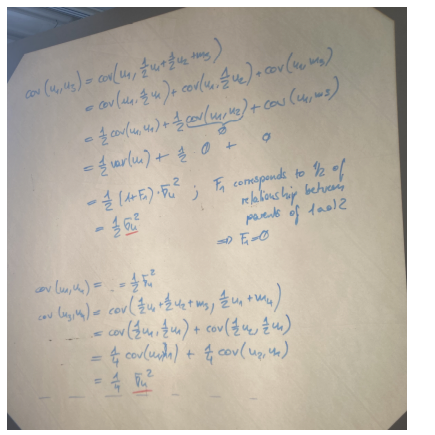 cov(u₁,u₃) = cov(u₁, ½u₁ + ½u₂ + m₃)
= cov(u₁, ½u₁) + cov(u₁, ½u₂) + cov(u₁, m₃)
= ½ cov(u₁,u₁) + ½ cov(u₁,u₂) + cov(u₁,m₃)
0
= ½ var(u₁) + ½ 0 + 0
= ½ (1+F₁)·σᵤ² ; F₁ corresponds to ½ of
relationship between
parents of 1 and 2
= ½ σᵤ²
⇒ F₁=0
cov(u₁,u₄) = .. = ½ σᵤ²
cov(u₃,u₄) = cov(½u₁ + ½u₂ + m₃, ½u₁ + m₄)
= cov(½u₁, ½u₁) + cov(½u₂, ½u₁)
= ¼ cov(u₁,u₁) + ¼ cov(u₂,u₁)
= ¼ σᵤ²